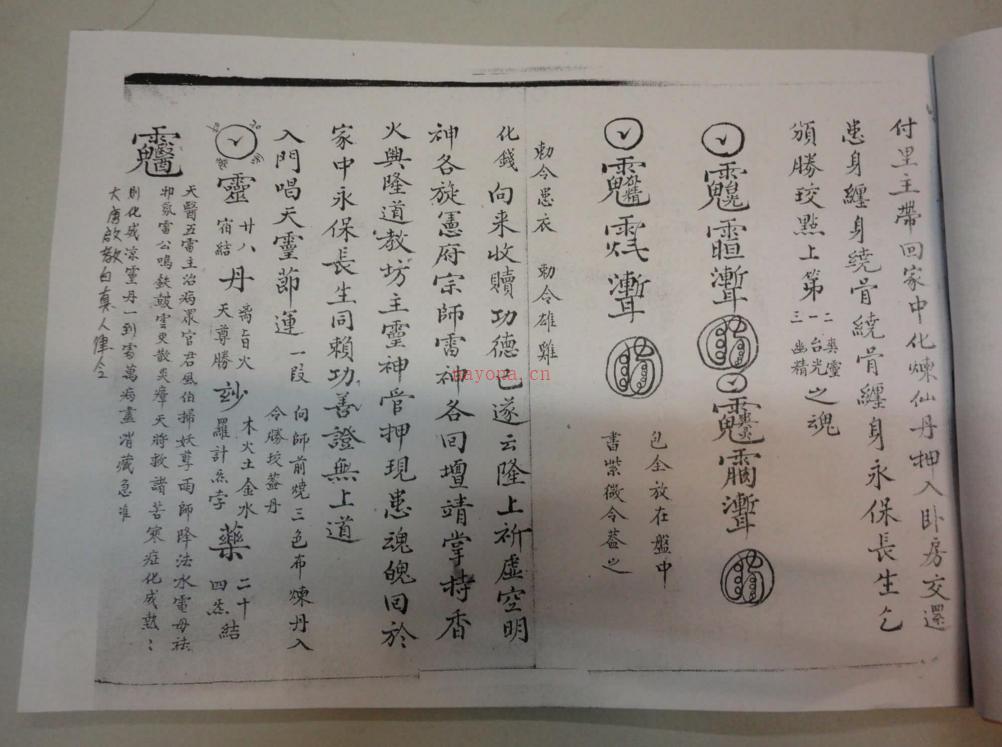 付里主帶回家中化煉仙丹押入卧房交還
患身纏身繞骨繞骨纏身永保長生乞
頒勝珓點上第一台光二爽靈三幽精之魂
包全放在盤中
書紫微令蓋之
勅令患衣 勅令雄雞
化錢向来收贖功德已遂云隆上祈虛空明
神各旋憲府宗師雷神各回壇靖掌持香
火興隆道教坊主靈神管押現患魂魄回於
家中永保長生同賴功善證無上道
入門唱天靈節運一段 向師前燒三色布煉丹入
令勝珓蓋丹
靈 廿八宿結 丹 火天尊勝 木火土金水羅計炁孛 藥 二十四炁結
天醫五雷主治病眾官君風伯掃妖尊雨師降法水電母祛
邪氛雷公鳴鉄鼓雲更散炎瘴天將救諸苦寒症化成熱
則化成凉靈丹一到處萬病盡消藏急准
大唐啟教白真人律令
nayona.cn